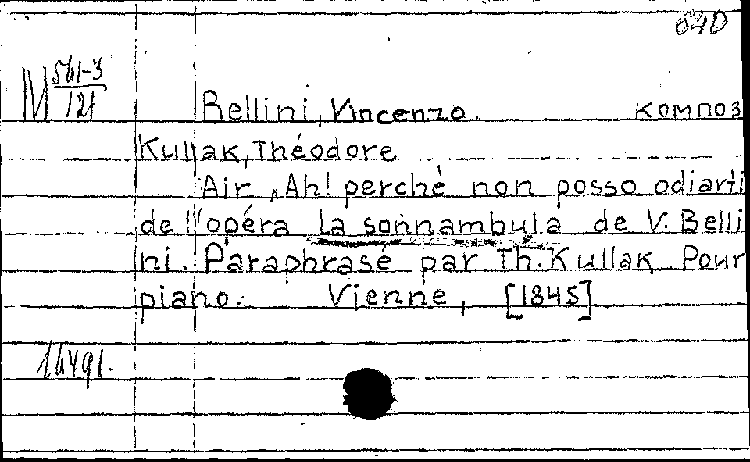 840
М 561-3
121
Bellini, Vincenzo. композ
Kullak, Théodore
Air „Ah! perchè non posso odiarti
de l'opéra La sonnambula de V. Belli
ni. Paraphrasé par Th. Kullak Pour
piano. Vienne, [1845]
16491.